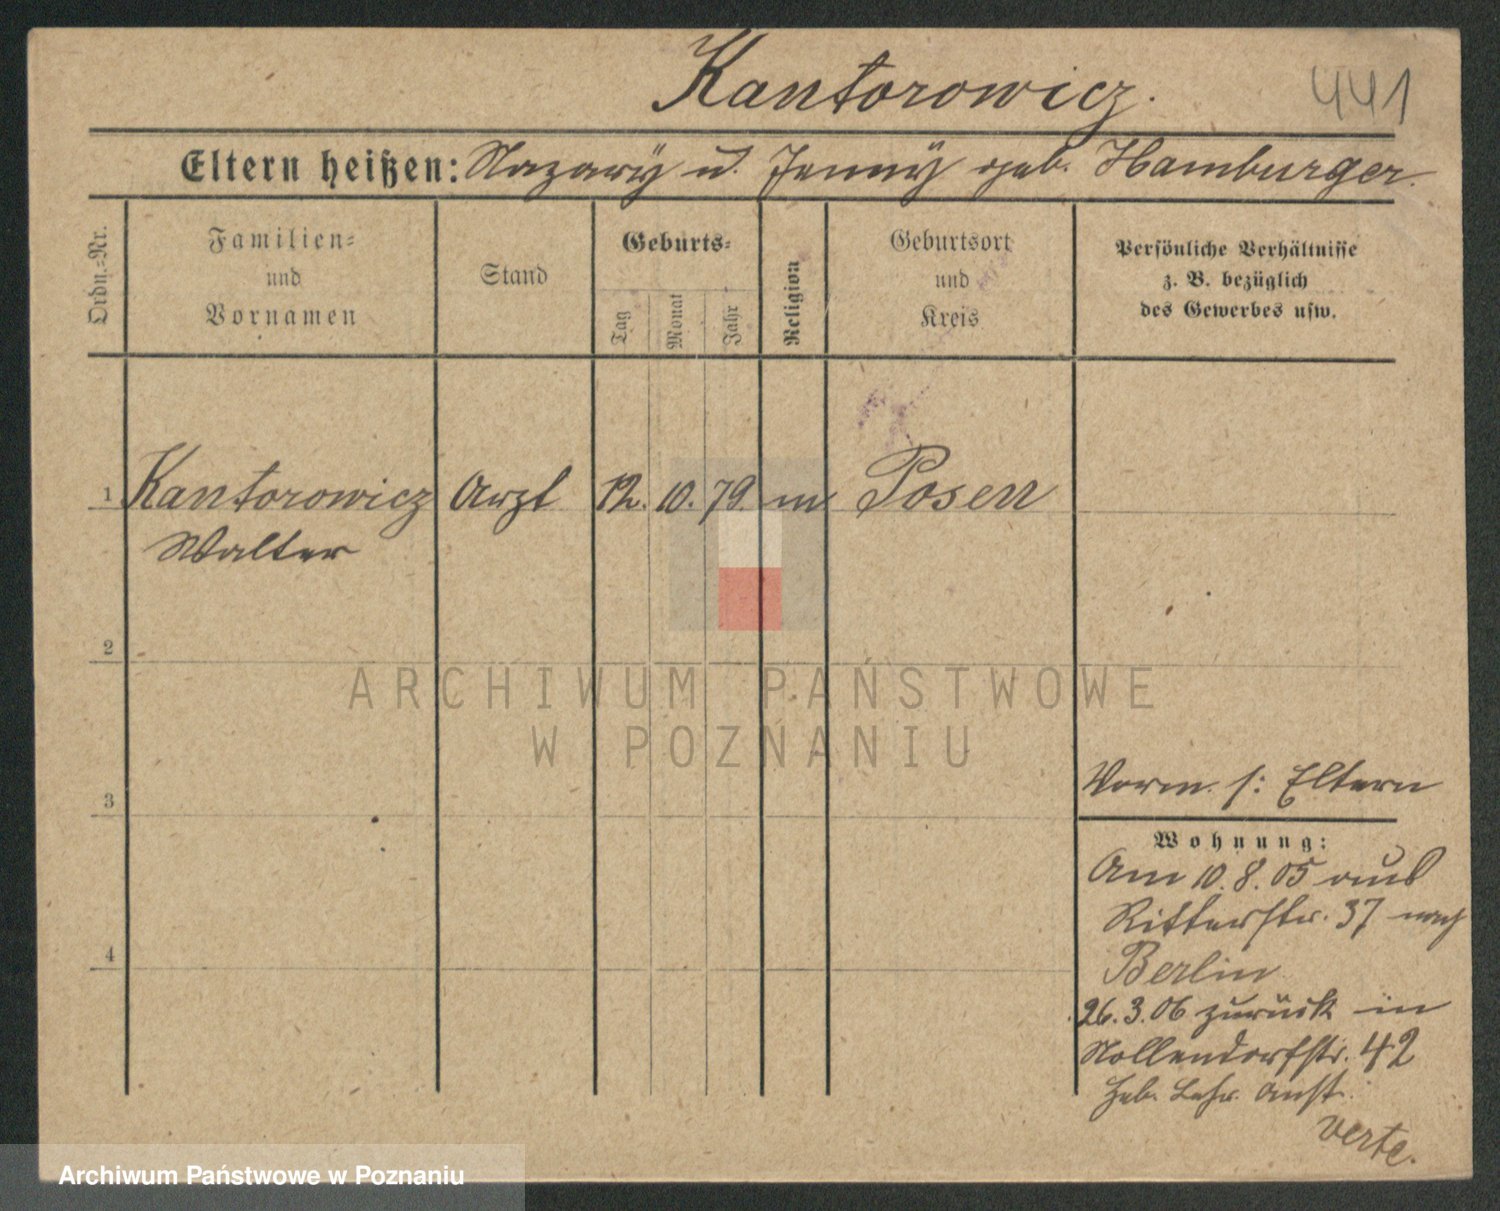 Kantorowicz.
441
Eltern heißen: Nazary u. Jenny geb. Hamburger.
Ordn.-Nr.
Familien-
und
Vornamen
Stand
Geburts-
Tag
Monat
Jahr
Religion
Geburtsort
und
Kreis
Persönliche Verhältnisse
z. B. bezüglich
des Gewerbes usw.
1 Kantorowicz Arzt 12. 10. 79. m Posen
Walter
2
ARCHIWUM PAŃSTWOWE
W POZNANIU
3
Vorm. s: Eltern
Wohnung:
Am 10. 8. 05 aus
Ritterstr. 37 nach
Berlin
4
26. 3. 06 zurück in
Nollendorfstr. 42
Heb. Lehr. Anst.
verte.
Archiwum Państwowe w Poznaniu